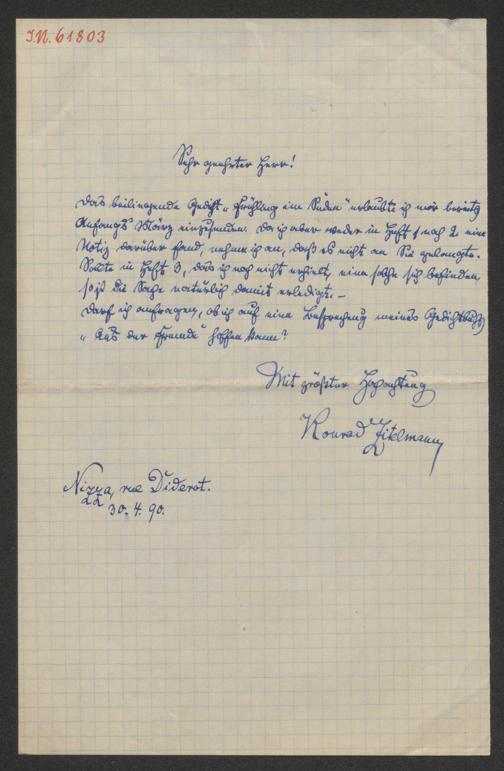 I.N. 61803
Sehr geehrter Herr!
Das beiliegende Gedicht „Frühling im Süden" erlaubte ich mir bereits
Anfangs März einzusenden. Da ich aber weder in Heft 1 noch 2 eine
Notiz darüber fand, nehme ich an, daß es nicht an Sie gelangte.
Sollte in Heft 3, das ich noch nicht erhielt, eine solche sich befinden,
so ist die Sache natürlich damit erledigt. –
Darf ich anfragen, ob ich auf eine Besprechung meines Gedichtbuchs
„Aus der Fremde" hoffen kann?
Mit größter Hochachtung
Konrad Zitelmann
Nizza, rue Diderot.
22
30. 4. 90.